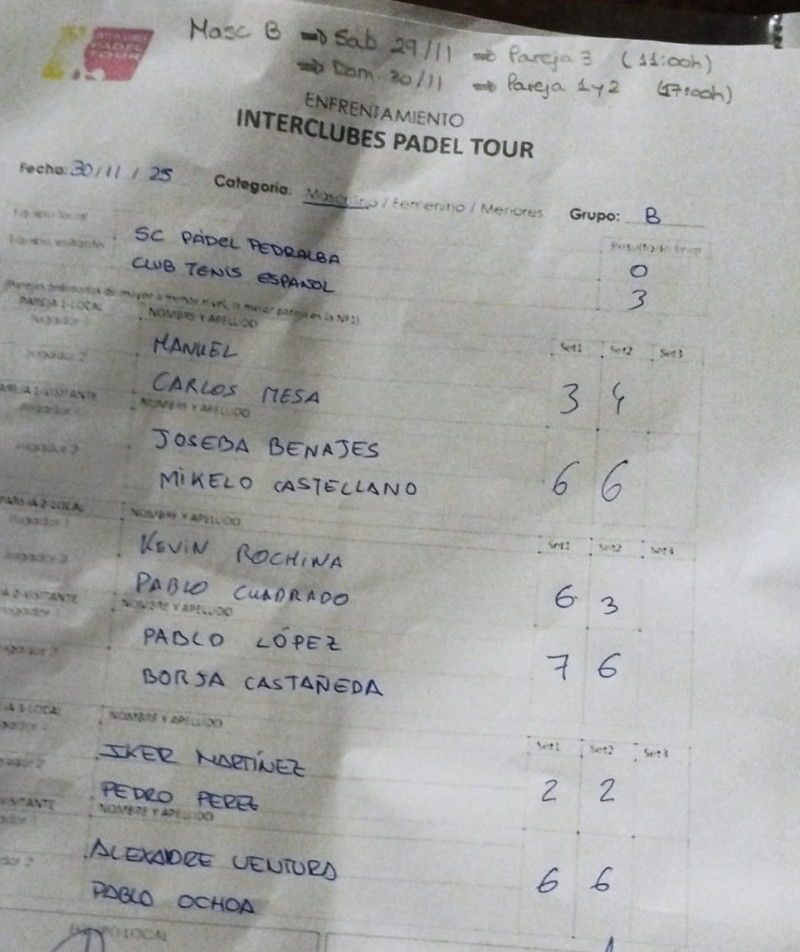 PADEL
TOUR
Masc B => Sab 29/11 => Pareja 3 (11:00h)
=> Dom. 30/11 => Pareja 1 y 2 (17:00h)
ENFRENTAMIENTO
INTERCLUBES PADEL TOUR
Fecha: 30/11/25 Categoria: Masculino / Femenino / Menores Grupo: B
Equipo local SC PÁDEL PEDRALBA Resultado final 0
Equipo visitante CLUB TENIS ESPAÑOL 3
(Parejas ordenadas de mayor a menor nivel, la mejor pareja en la Nº1)
PAREJA 1-LOCAL NOMBRE Y APELLIDO Set1 Set2 Set3
Jugador 1 MANUEL
Jugador 2 CARLOS MESA 3 4
PAREJA 1-VISITANTE NOMBRE Y APELLIDO
Jugador 1 JOSEBA BENAJES
Jugador 2 MIKELO CASTELLANO 6 6
PAREJA 2-LOCAL NOMBRE Y APELLIDO Set1 Set2
Jugador 1 KEVIN ROCHINA
Jugador 2 PABLO CUADRADO 6 3
A 2-VISITANTE NOMBRE Y APELLIDO
Jugador 1 PABLO LÓPEZ
Jugador 2 BORJA CASTAÑEDA 7 6
JA 3-LOCAL NOMBRE Y APELLIDO Set1 Set2 Set3
IKER MARTÍNEZ
PEDRO PEREZ 2 2
VISITANTE NOMBRE Y APELLIDO
ALEXANDRE VENTURA
PABLO OCHOA 6 6
EQUIPO LOCAL